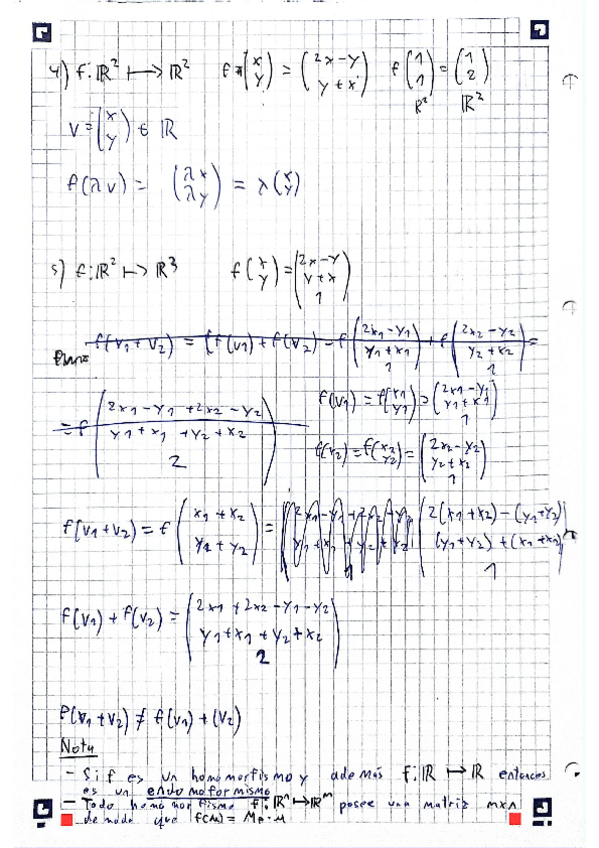 4) f: ℝ² ↦ ℝ² f = (x y) = (2x-y y+x) f(1 1) = (1 2)
ℝ² ℝ²
v = (x y) ∈ ℝ
f(λv) = (λx λy) = λ(x y)
5) f: ℝ² ↦ ℝ³ f(x y) = (2x-y y+x 1)
f(v1+v2) = (f(v1)+f(v2) = f(2x1-y1 y1+x1 1) + f(2x2-y2 y2+x2 1) =
= f(2x1-y1+2x2-y2 y1+x1+y2+x2 2)
f(v1) = f(x1 y1) = (2x1-y1 y1+x1 1)
f(v2) = f(x2 y2) = (2x2-y2 y2+x2 1)
f(v1+v2) = f(x1+x2 y1+y2) = (2(x1+x2)-(y1+y2) (y1+y2)+(x1+x2) 1)
f(v1)+f(v2) = (2x1+2x2-y1-y2 y1+x1+y2+x2 2)
f(v1+v2) ≠ f(v1)+(v2)
Nota
- Si f es un homomorfismo y además f: ℝ ↦ ℝ entonces
es un endomoformismo
- Todo homomorfismo f: ℝⁿ ↦ ℝᵐ posee una matriz mxn
de modo que f(u) = M_f · u